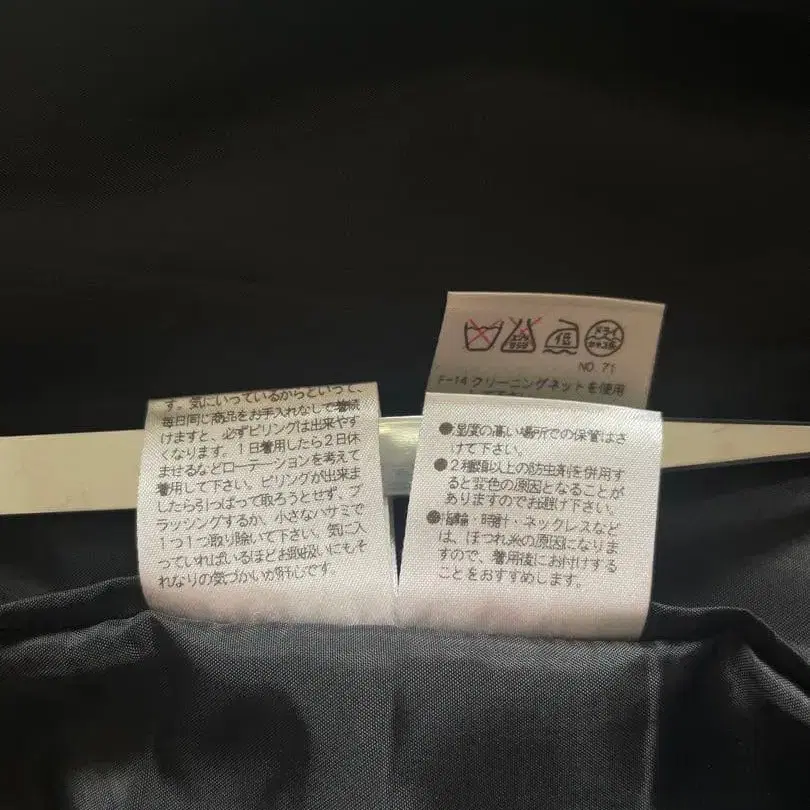 す。気にいっているからといって、
毎日同じ商品をお手入れなしで着続
けますと、必ずピリングは出来やす
くなります。1日着用したら2日休
ませるなどローテーションを考えて
着用して下さい。ピリングが出来ま
したら引っぱって取ろうとせず、ブ
ラッシングするか、小さなハサミで
1つ1つ取り除いて下さい。気に入
っていればいるほどお取扱いにもそ
れなりの気づかいが肝心です。
ドライ
NO. 71
F-14 クリーニングネットを使用
して下さい
●湿度の高い場所での保管はさ
けて下さい。
●2種類以上の防虫剤を併用す
ると変色の原因となることが
ありますのでお避け下さい。
●指輪・時計・ネックレスなど
は、ほつれ糸の原因になりま
すので、着用後にお付けする
ことをおすすめします。